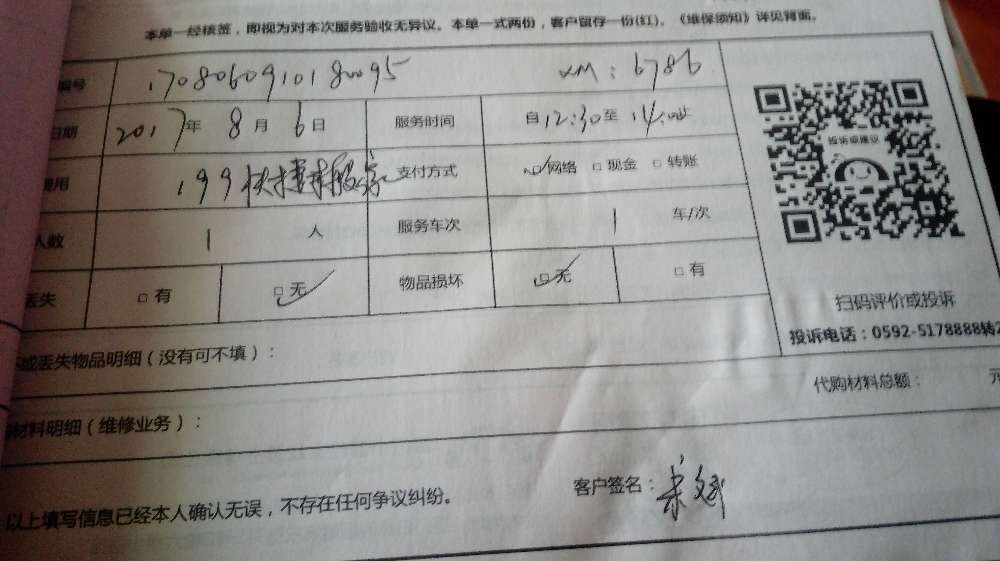 本单一经核签，即视为对本次服务验收无异议。本单一式两份，客户留存一份(红)。《维保须知》详见背面。
编号 1708060910180095 XM：6786
日期 2017年 8月 6日 服务时间 自12:30至14:00止
费用 199 支付方式 □网络 □现金 □转账
人数 1 人 服务车次 1 车/次
丢失 □有 □无 物品损坏 □无 □有
投诉或建议
扫码评价或投诉
投诉电话：0592-5178888转2
或丢失物品明细（没有可不填）：
代购材料总额： 元
材料明细（维修业务）：
以上填写信息已经本人确认无误，不存在任何争议纠纷。
客户签名：